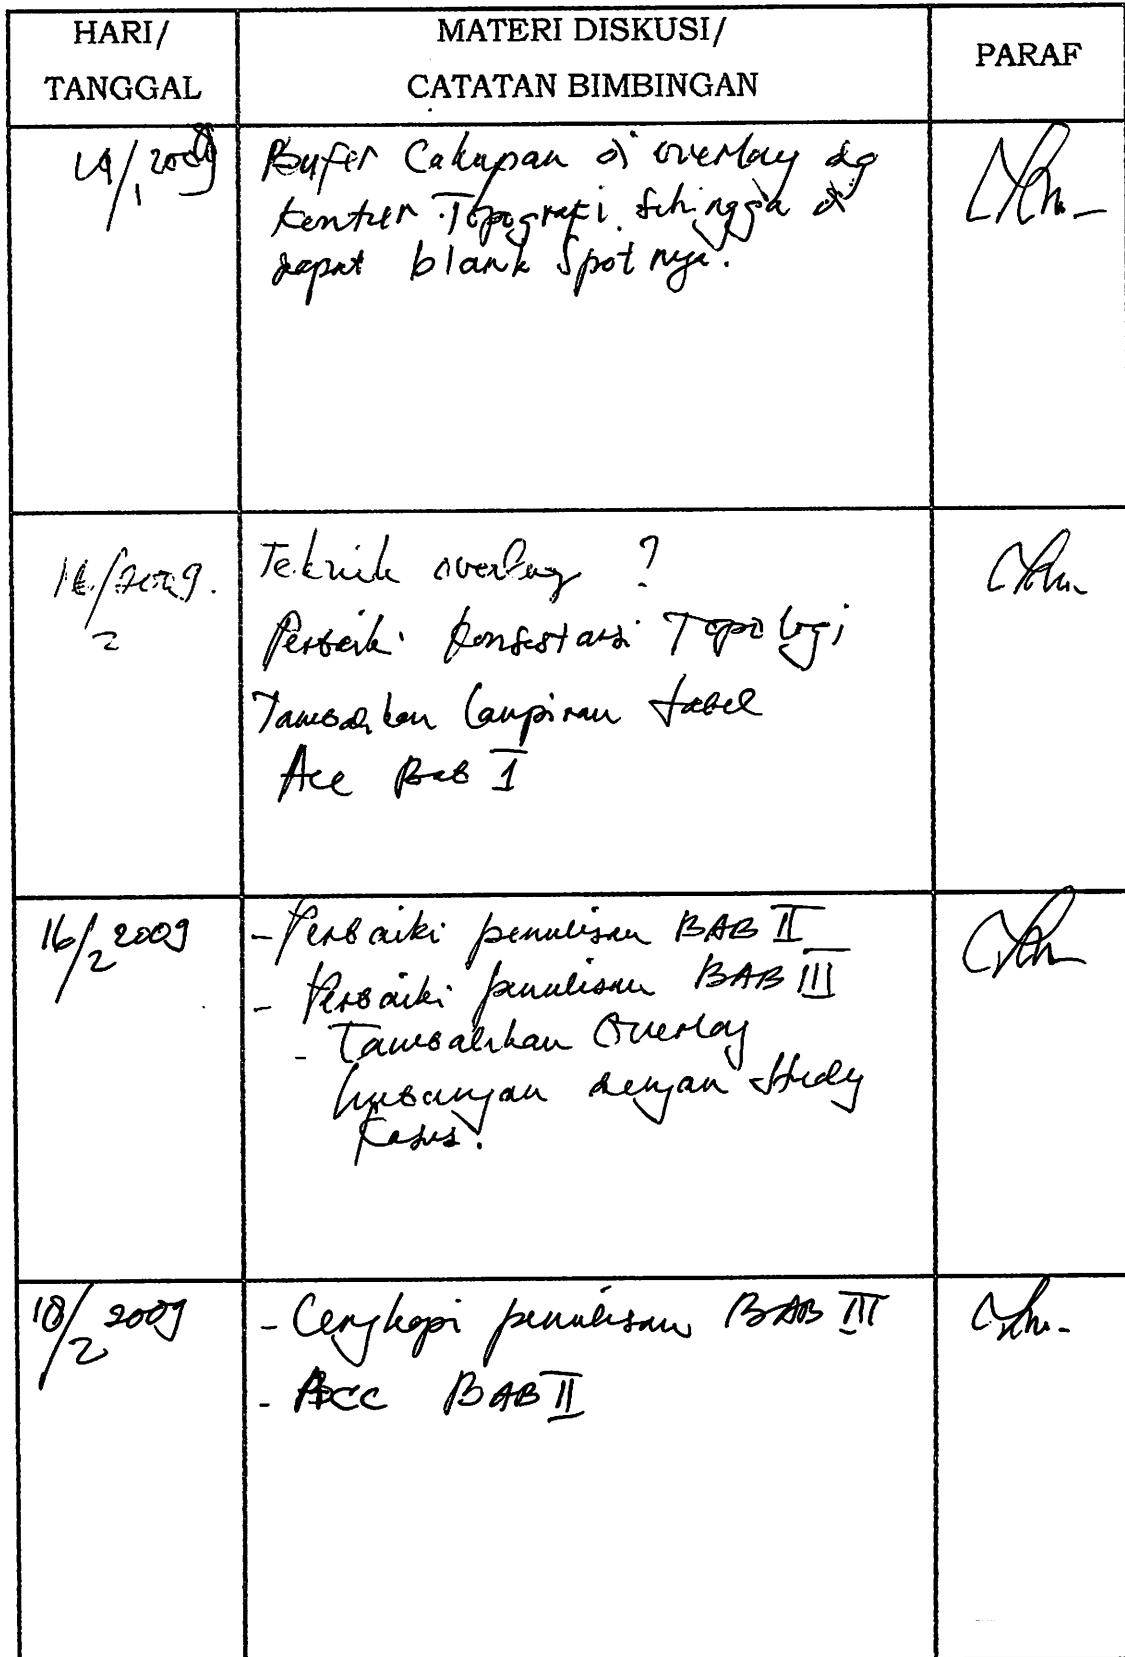 HARI/
TANGGAL
MATERI DISKUSI/
CATATAN BIMBINGAN
PARAF
/1 2009
Bufer Cakupan di overlay dg
kontur Topografi sehingga di
dapat blank spot nya.
/2 2009.
Teknik overlay ?
Perbaiki Topologi
Tambahkan lampiran tabel
Acc Bab I
16/2 2009
- Perbaiki penulisan BAB II
- Perbaiki penulisan BAB III
- Tambahkan Overlay
hubungan dengan Study
Kasus.
18/2 2009
- Lengkapi penulisan BAB III
- ACC BAB II